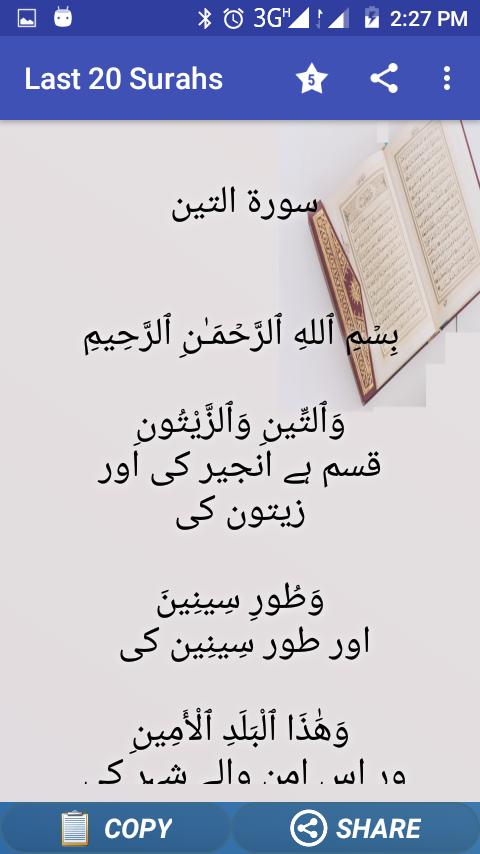 3G H 2:27 PM
Last 20 Surahs
5
سورة التين
بِسْمِ ٱللهِ ٱلرَّحْمَـٰنِ ٱلرَّحِيمِ
وَٱلتِّينِ وَٱلزَّيْتُونِ
قسم ہے انجیر کی اور
زیتون کی
وَطُورِ سِينِينَ
اور طور سِینِین کی
وَهَٰذَا ٱلْبَلَدِ ٱلْأَمِينِ
ور اس امن والے شہر کی
COPY
SHARE